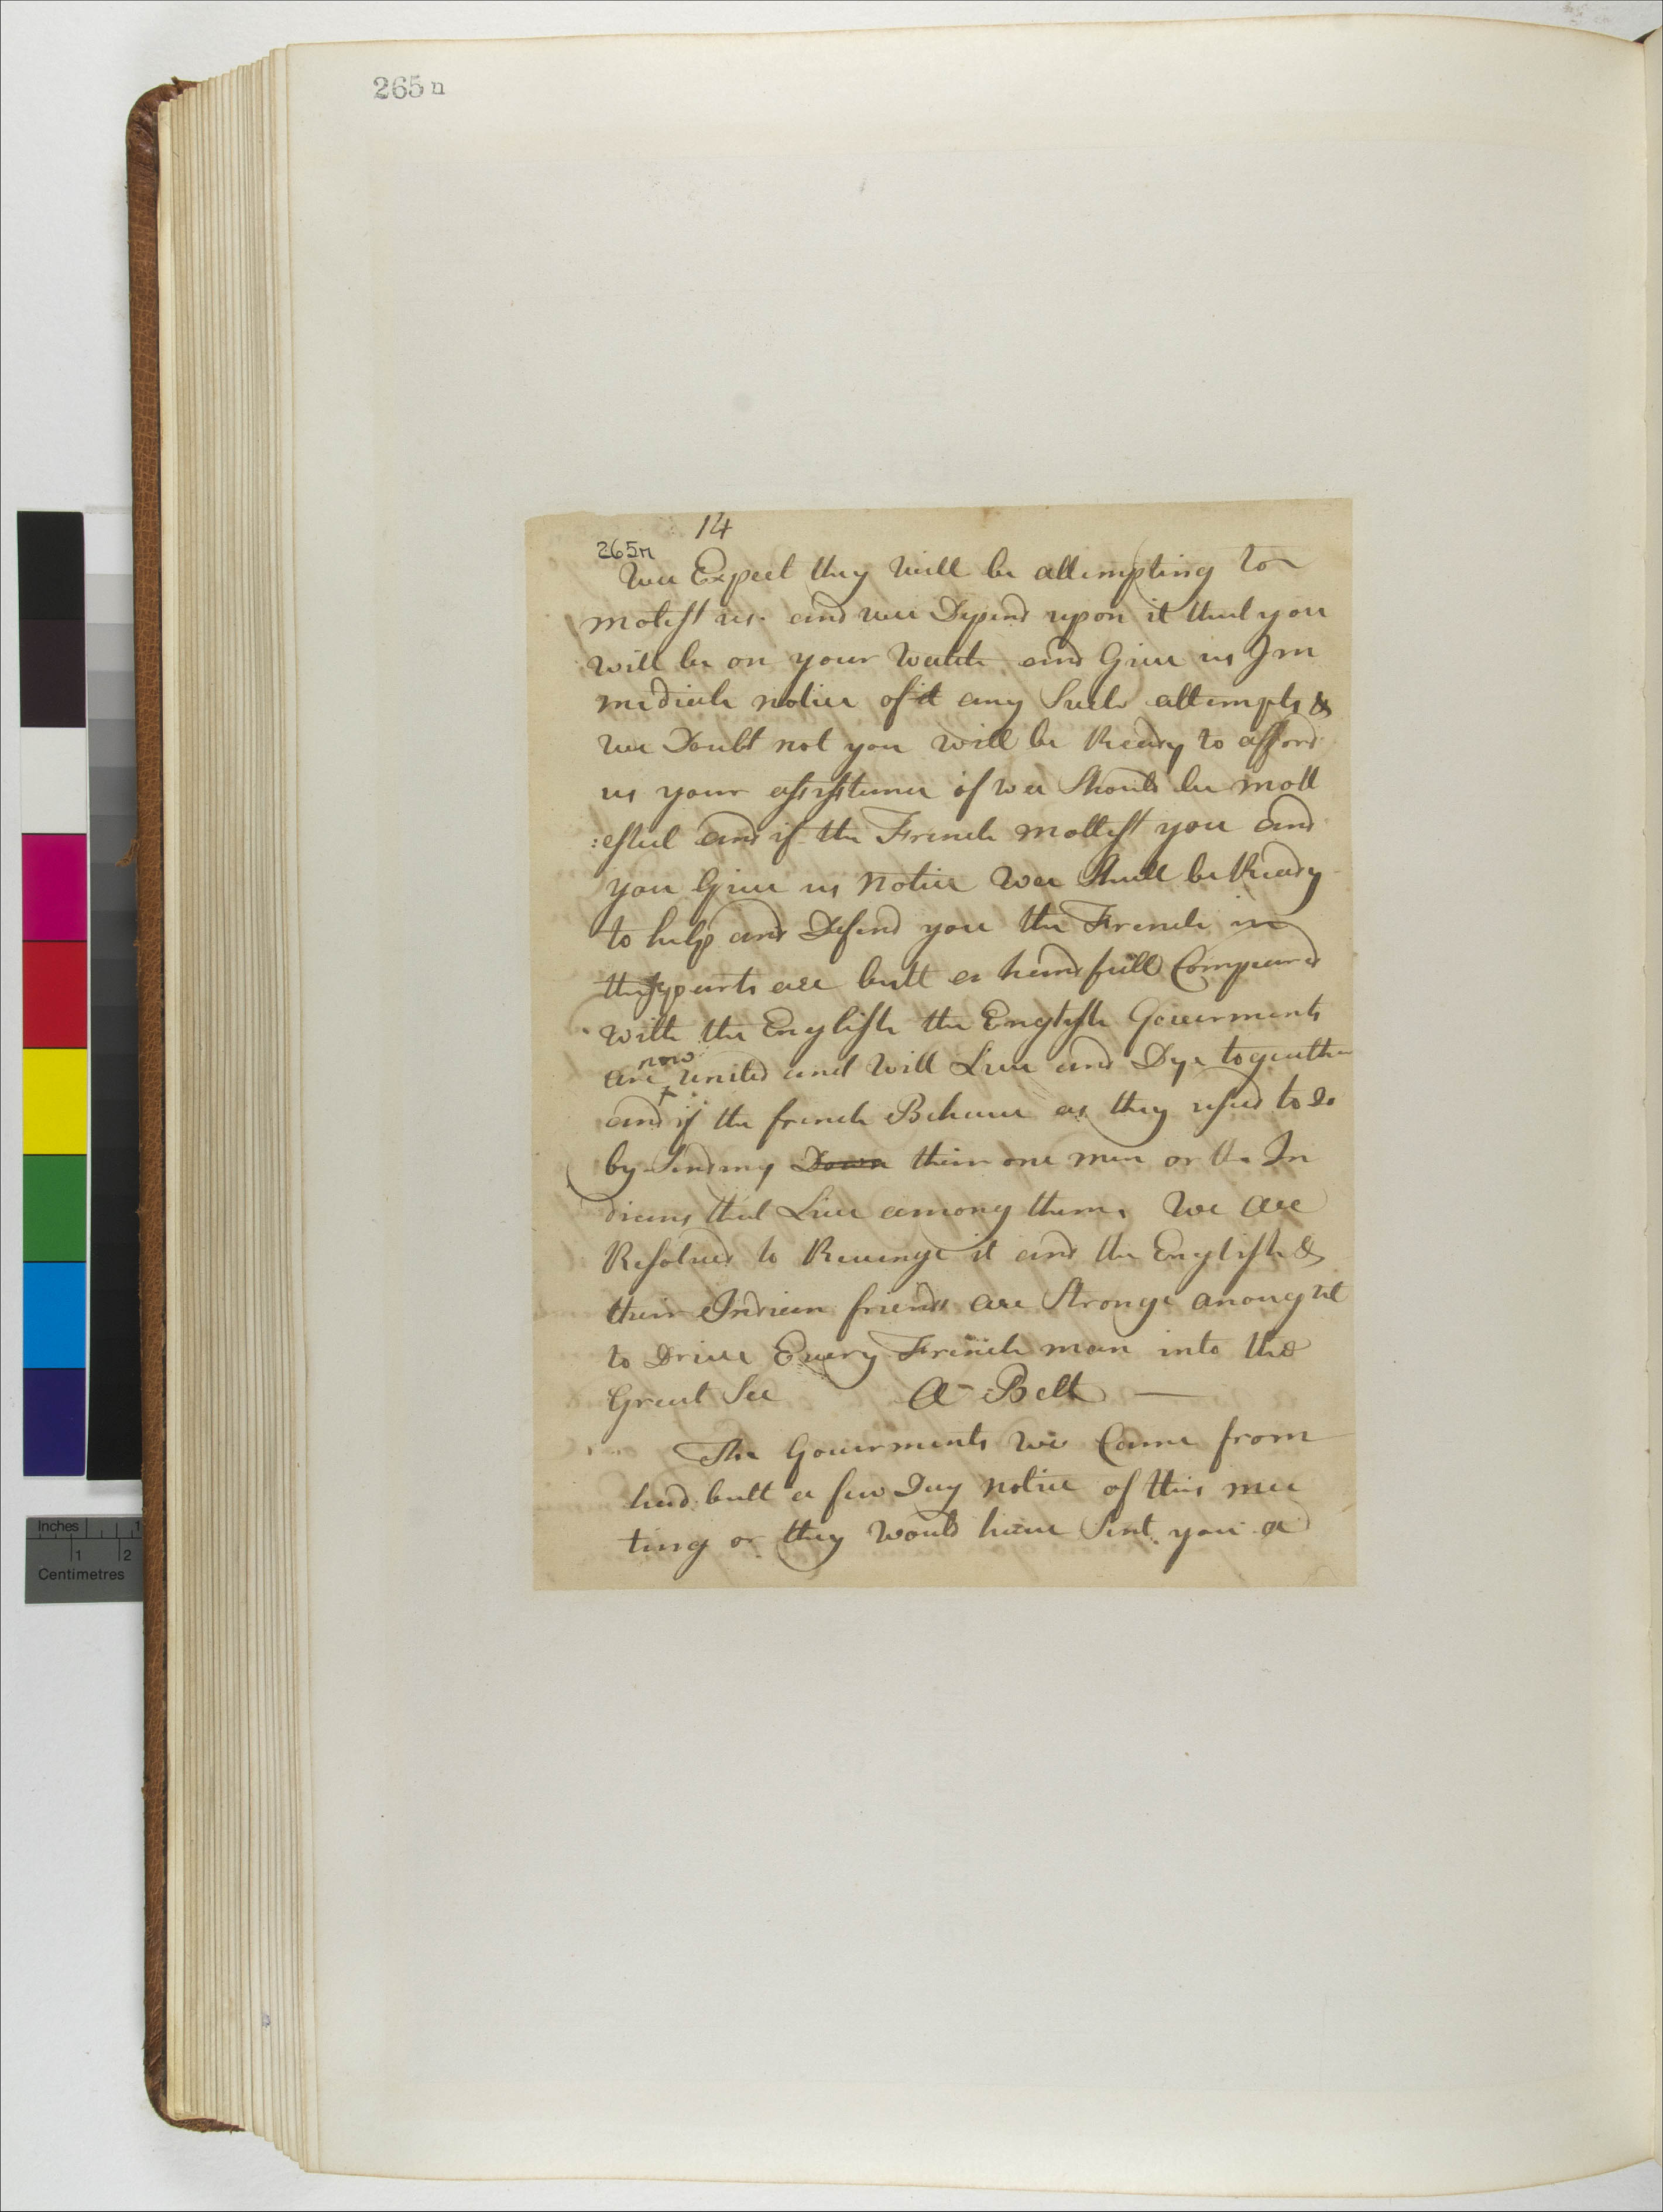 265 n
14
265n
Wee Expect they will be attempting to
molest us and wee Depend upon it that you
will be on your Watch and Give us Im
mediate notice of it any Such attempts &
we Doubt not you will be Ready to afford
us your assistance if wee Should be moll
:ested and if the French mollest you and
you Give us Notice Wee Shall be Ready
to help and Defend you the French in
these parts are butt a handfull Compeared
with the English the English Gouerments
now
are united and will Liue and Dye togeather
and if the french Behaue as they used to do
by Sending Down their one men or the In
dians that Liue among them, We are
Resolued to Reuenge it and the English &
their Indian friends are Stronge anough
to Driue Euery French man into the
Great Sea A Belt
The Gouerments we Came from
had butt a few Day notice of this mee
ting or they would haue Sent you a
Inches 1
1 2
Centimetres